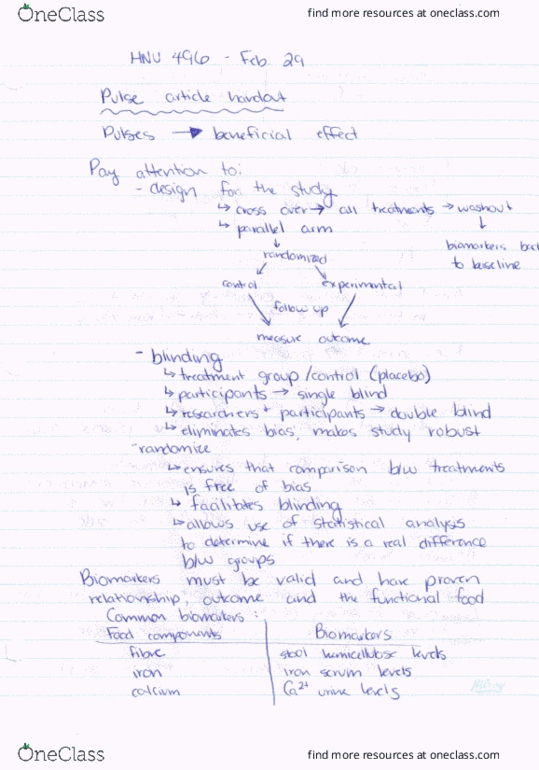 OneClass find more resources at oneclass.com
HNU 496 - Feb. 29
Pulse article handout
Pulses → beneficial effect
Pay attention to:
- design for the study
↳ cross over → all treatments → washout
↓
biomarkers back
to baseline
↳ parallel arm
↓
randomized
control experimental
follow up
measure outcome
- blinding
↳ treatment group/control (placebo)
↳ participants → single blind
↳ researchers + participants → double blind
↳ eliminates bias, makes study robust
- randomize
↳ ensures that comparison b/w treatments
is free of bias
↳ facilitates blinding
↳ allows use of statistical analysis
to determine if there is a real difference
b/w groups
Biomarkers must be valid and have proven
relationship, outcome and the functional food
Common biomarkers:
Food components Biomarkers
fibre stool hemicellulose levels
iron iron serum levels
calcium Ca²⁺ urine levels
Hilroy
OneClass find more resources at oneclass.com